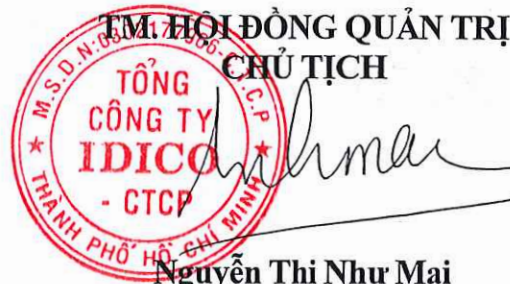 TM. HỘI ĐỒNG QUẢN TRỊ
CHỦ TỊCH
TỔNG
CÔNG TY
IDICO
- CTCP
THÀNH PHỐ HỒ CHÍ MINH
Nguyễn Thị Như Mai